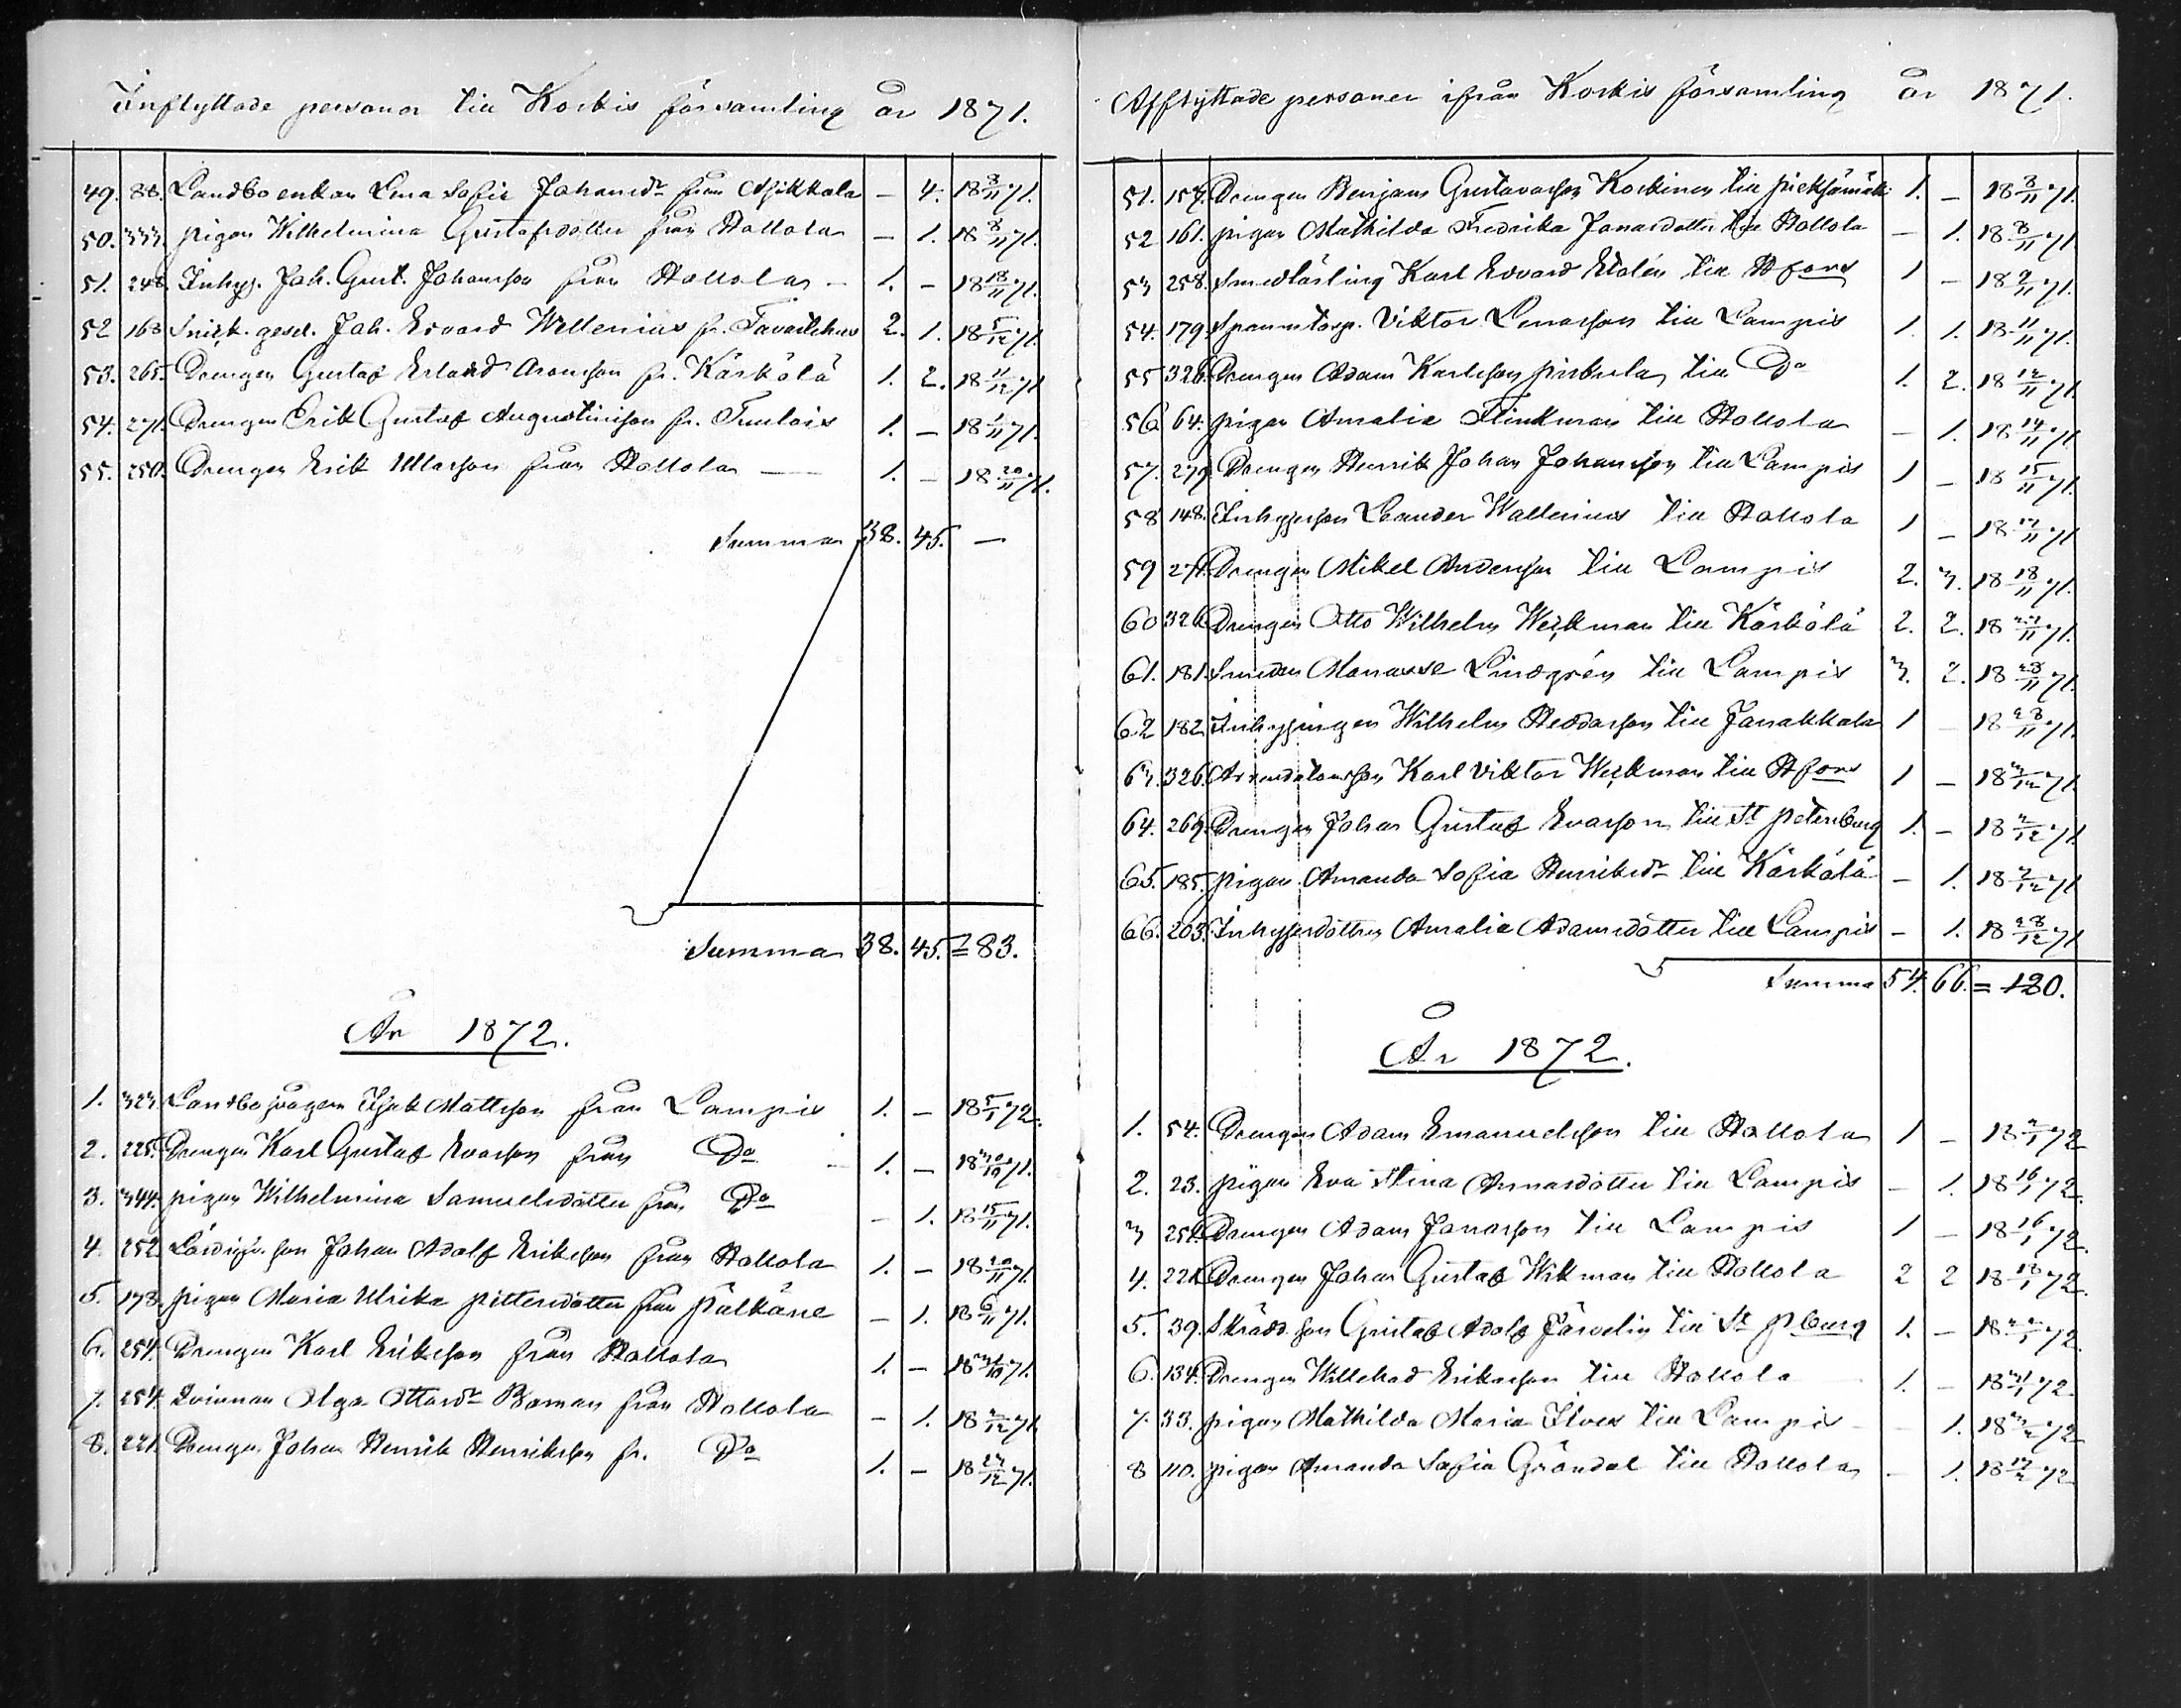 Inflyttade personer till Korkis församling år 1871.
49. 88. Landboenkan Lena Sofie Johansdr från Asikkala – 4. 18 8/11 71.
50. 333. pigan Wilhelmina Gustafsdotter från Hollola – 1. 18 8/11 71.
51. 248. Inhys. Joh. Gust. Johansson från Hollola – 1. – 18 18/11 71.
52 168 Snick. gesel. Joh. Edvard Wellenius fr. Tavastehus 2. 1. 18 5/12 71.
53. 265. Drengen Gustaf Erland Aronsson fr. Kärkölä 1. 2. 18 11/12 71
54. 271. Drengen Erik Gustaf Augustinsson fr. Tuulois 1. – 18 1/11 71.
55. 250. Drengen Erik Ullasson från Hollola — 1. – 18 20/11 71.
Summa 38. 45. —
Summa 38. 45. = 83.
År 1872.
1. 323. Landbo Isak Mattsson från Lampis 1. – 18 5/1 72.
2. 225. Drengen Karl Gustaf Evasson från Do – 1. – 18 30/10 71.
3. 344. pigan Wilhelmina Samuelsdotter från Do – 1. 18 15/11 71.
4. 252. son Johan Adolf Eriksson från Hollola 1. – 18 20/11 71
5. 178. pigan Maria Ulrika Pittersdotter från Pälkäne – 1. 18 6/11 71.
6. 254. Drengen Karl Eriksson från Hollola 1. – 18 31/10 71.
7. 254. Qvinnan Olga Ottosdr Boman från Hollola – 1. 18 2/12 71
8. 221. Drengen Johan Henrik Henriksson fr. Do 1. – 18 27/12 71.
Afflyttade personer ifrån Korkis församling år 1871.
51. 157. Drengen Benjam Gustavasson Korkinen till Pieksämäki 1. – 18 8/11 71.
52 161. pigan Mathilda Fredrika Jonasdotter till Hollola – 1. 18 8/11 71
53 258. Smedlärling Karl Edvard Ekolén till Hfors 1 – 18 9/11 71.
54. 179. Viktor Lenasson till Lampis 1. 1. 18 11/11 71.
55 326. Drengen Adam Karlsson Pirkula till Do 1. 2. 18 12/11 71.
56 64. pigan Amalia Flinkman till Hollola – 1. 18 14/11 71
57. 279. Drengen Henrik Johan Johansson till Lampis 1 – 18 15/11 71.
58 148. Inhyseson Leander Wallenius till Hollola 1 – 18 17/11 71
59 271. Drengen Mikel Andersson till Lampis 2. 3. 18 18/11 71.
60 326. Drengen Otto Wilhelm Weckman till Kärkölä 2. 2. 18 27/11 71.
61. 181. Smeden Manasse Lindgrén till Lampis 3. 2. 18 28/11 71.
62 182. Wilhelm Heddasson till Janakkala 1 – 18 28/11 71.
63. 326. Karl Viktor Weckman till Hfors 1 – 18 3/12 71.
64. 269. Drengen Johan Gustaf Evasson till St Petersburg 1. – 18 2/12 71.
65. 185. pigan Amanda Sofia Henriksdr till Kärkölä – 1. 18 7/12 71
66. 203. Inhysesdottren Amalia Adamsdotter till Lampis – 1. 18 28/12 71
Summa 54. 66. = 120.
År 1872.
1. 54. Drengen Adam Emanuelsson till Hollola 1 – 18 2/1 72
2. 23. pigan Eva Stina Annasdotter till Lampis – 1. 18 16/1 72.
3 254. Drengen Adam Jonasson till Lampis 1 – 18 16/1 72.
4. 221. Drengen Johan Gustaf Wikman till Hollola 2 2 18 18/1 72.
5. 39. Skrädd. son Gustaf Adolf Järvelin till St Pburg 1. – 18 22/1 72.
6. 134. Drengen Willehad Eriksson till Hollola 1. – 18 31/1 72
7. 33. pigan Mathilda Maria Ilves till Lampis – 1. 18 3/2 72
8 110. pigan Amanda Sofia Gröndal till Hollola – 1. 18 17/2 72